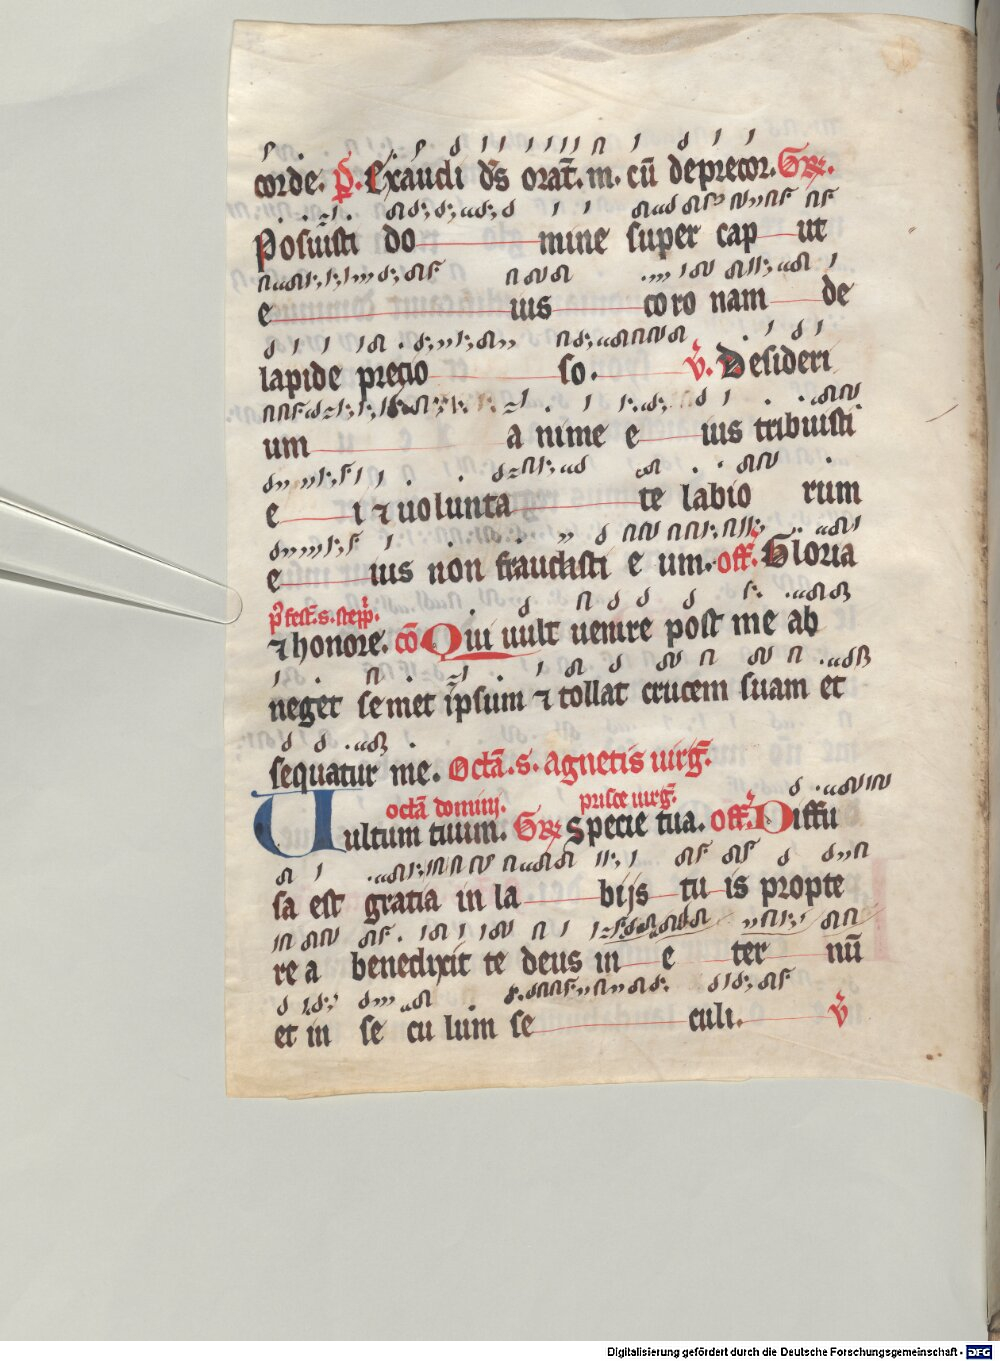 corde. p̄. Exaudi dn̄s orat̄. m. cū deprecor. Gr̄.
Posuisti do mine super cap ut
e ius coro nam de
lapide precio so. v̄. Desideri
um a nime e ius tribuisti
e i ⁊ uolunta te labio rum
e ius non fraudasti e um. off̄. Gloria
⁊ honore. cō Qui uult uenire post me ab
neget semet ipsum ⁊ tollat crucem suam et
sequatur me. Octā. s. Agnetis uirḡ.
octā domini. prisce uirḡ.
Uultum tuum. Gr̄ Specie tua. off̄. Diffu
sa est gratia in la bijs tu is propte
re a benedixit te deus in e ter nū
et in se cu lum se culi. v̄
Digitalisierung gefördert durch die Deutsche Forschungsgemeinschaft - DFG